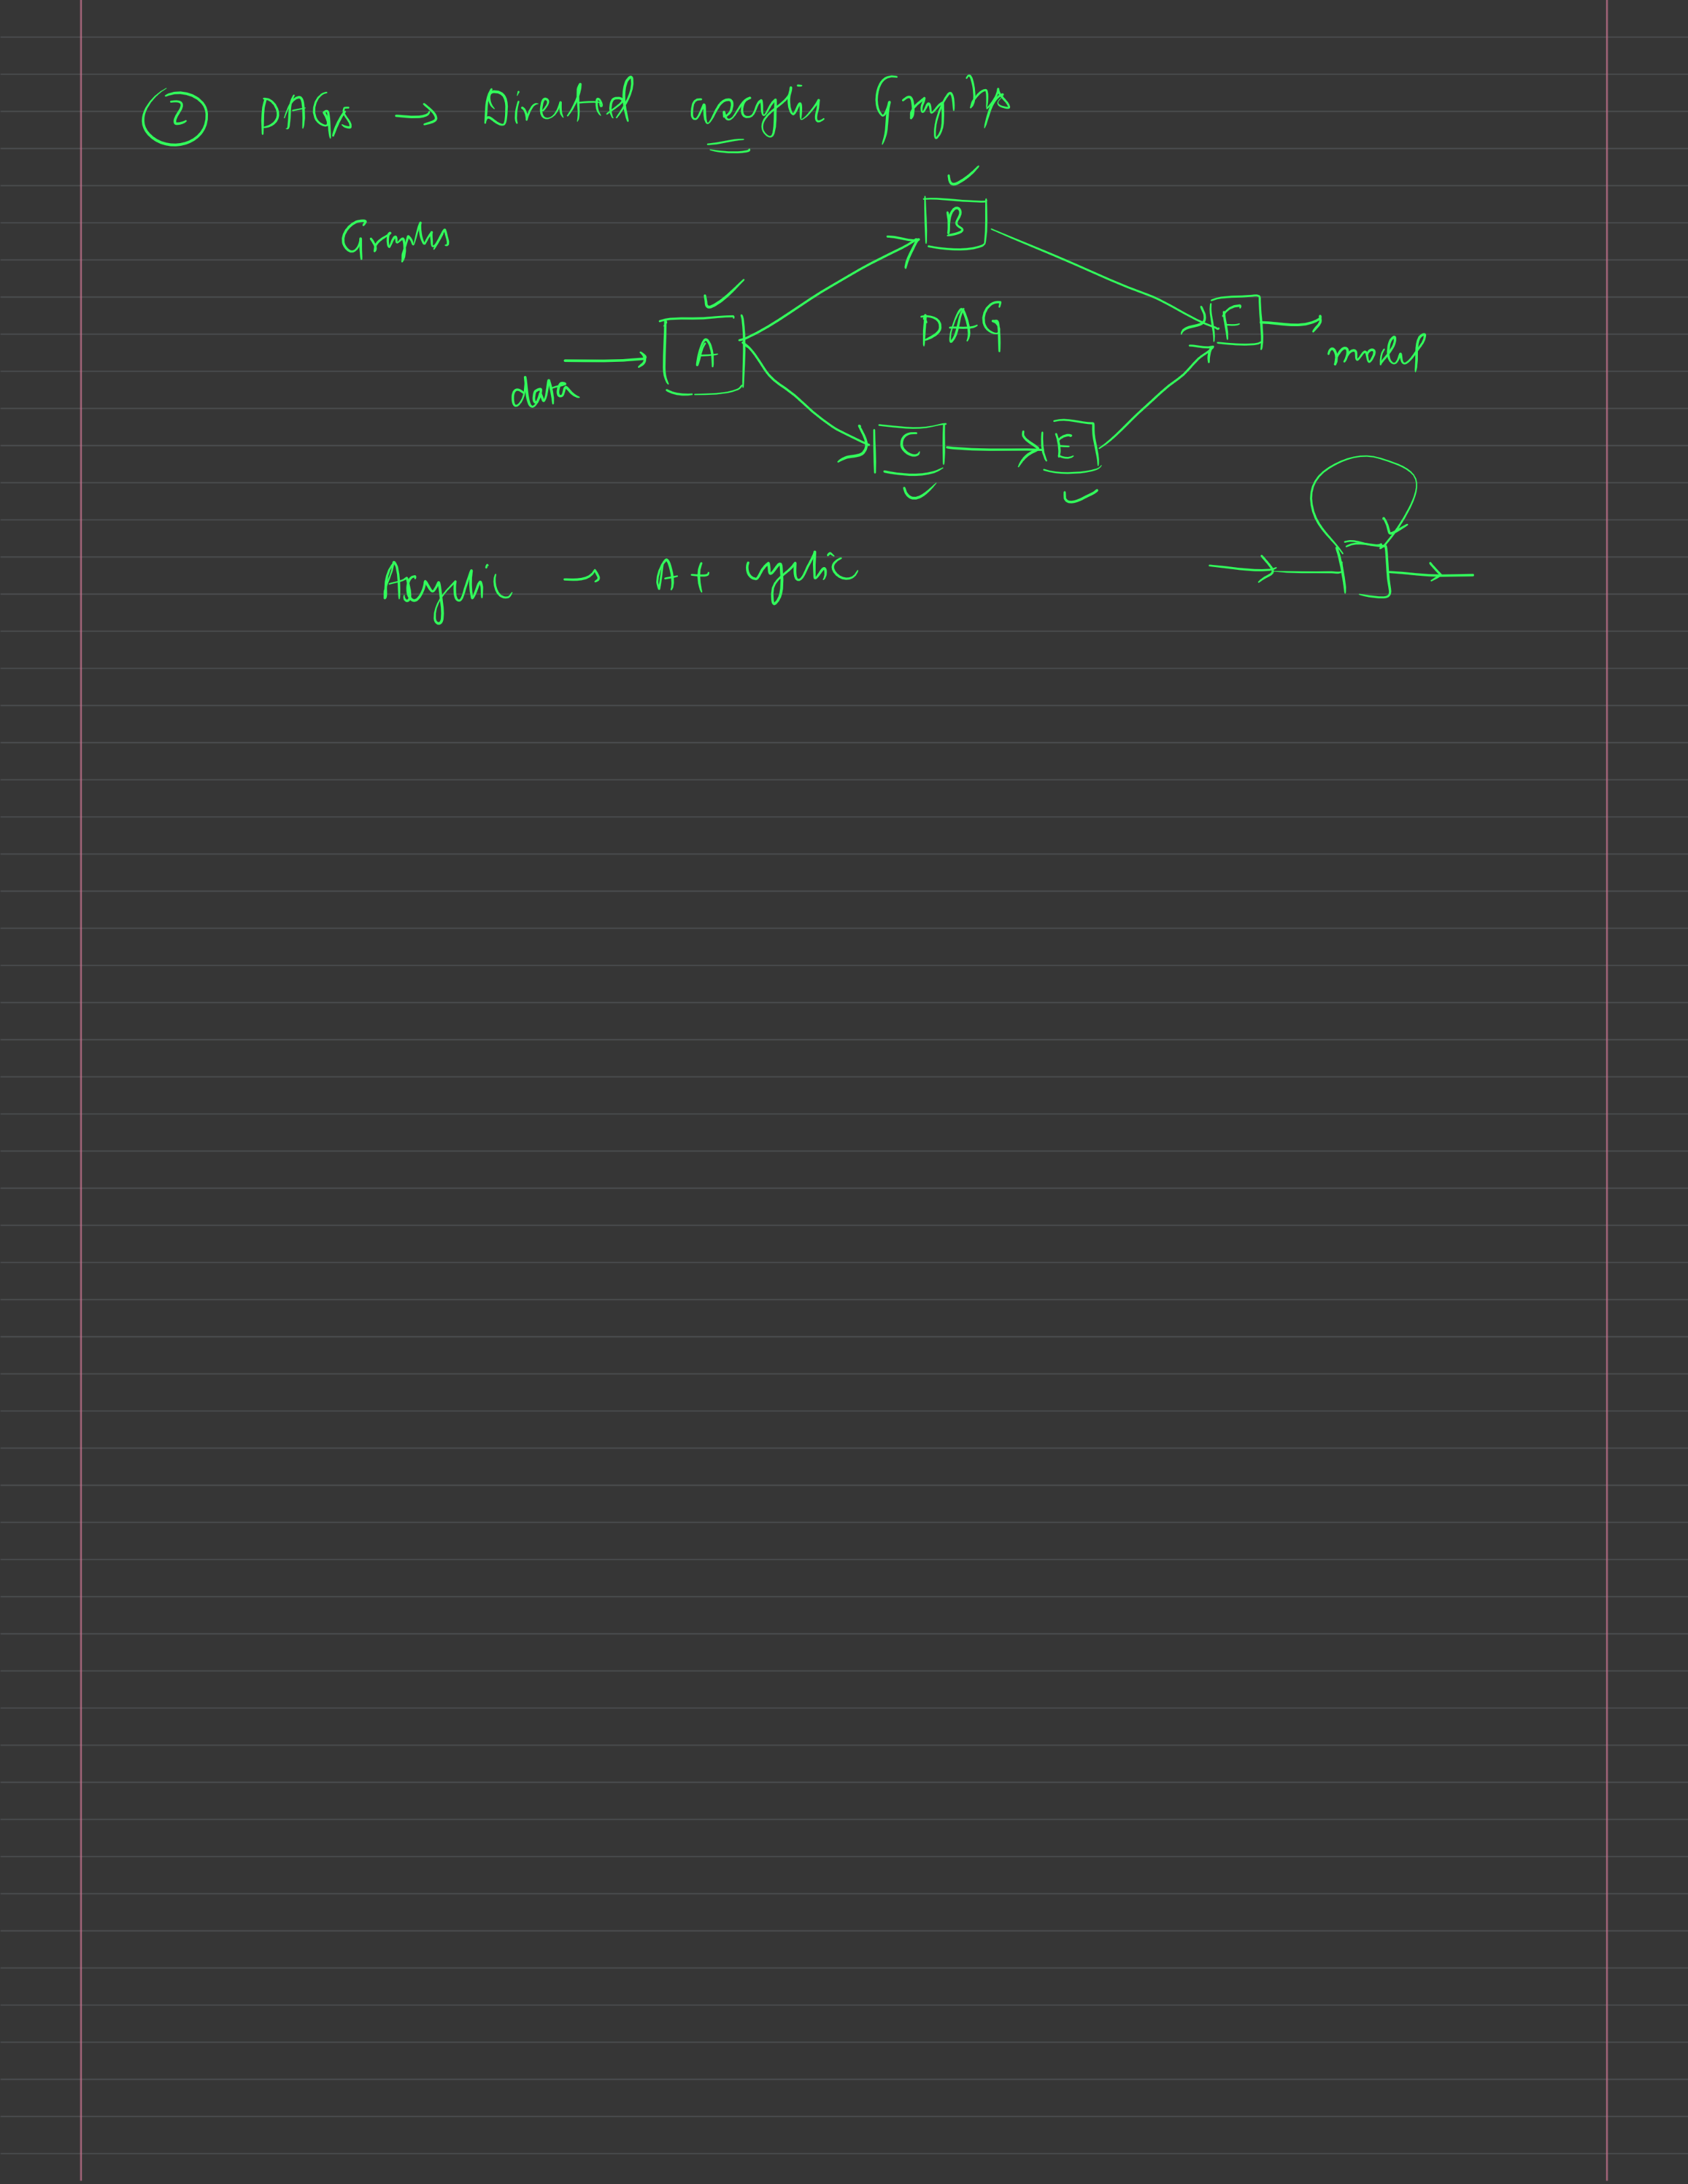 ② DAGs → Directed acyclic Graphs
Graphs
B
A
DAG
F
data
C
E
Acyclic → A + cyclic